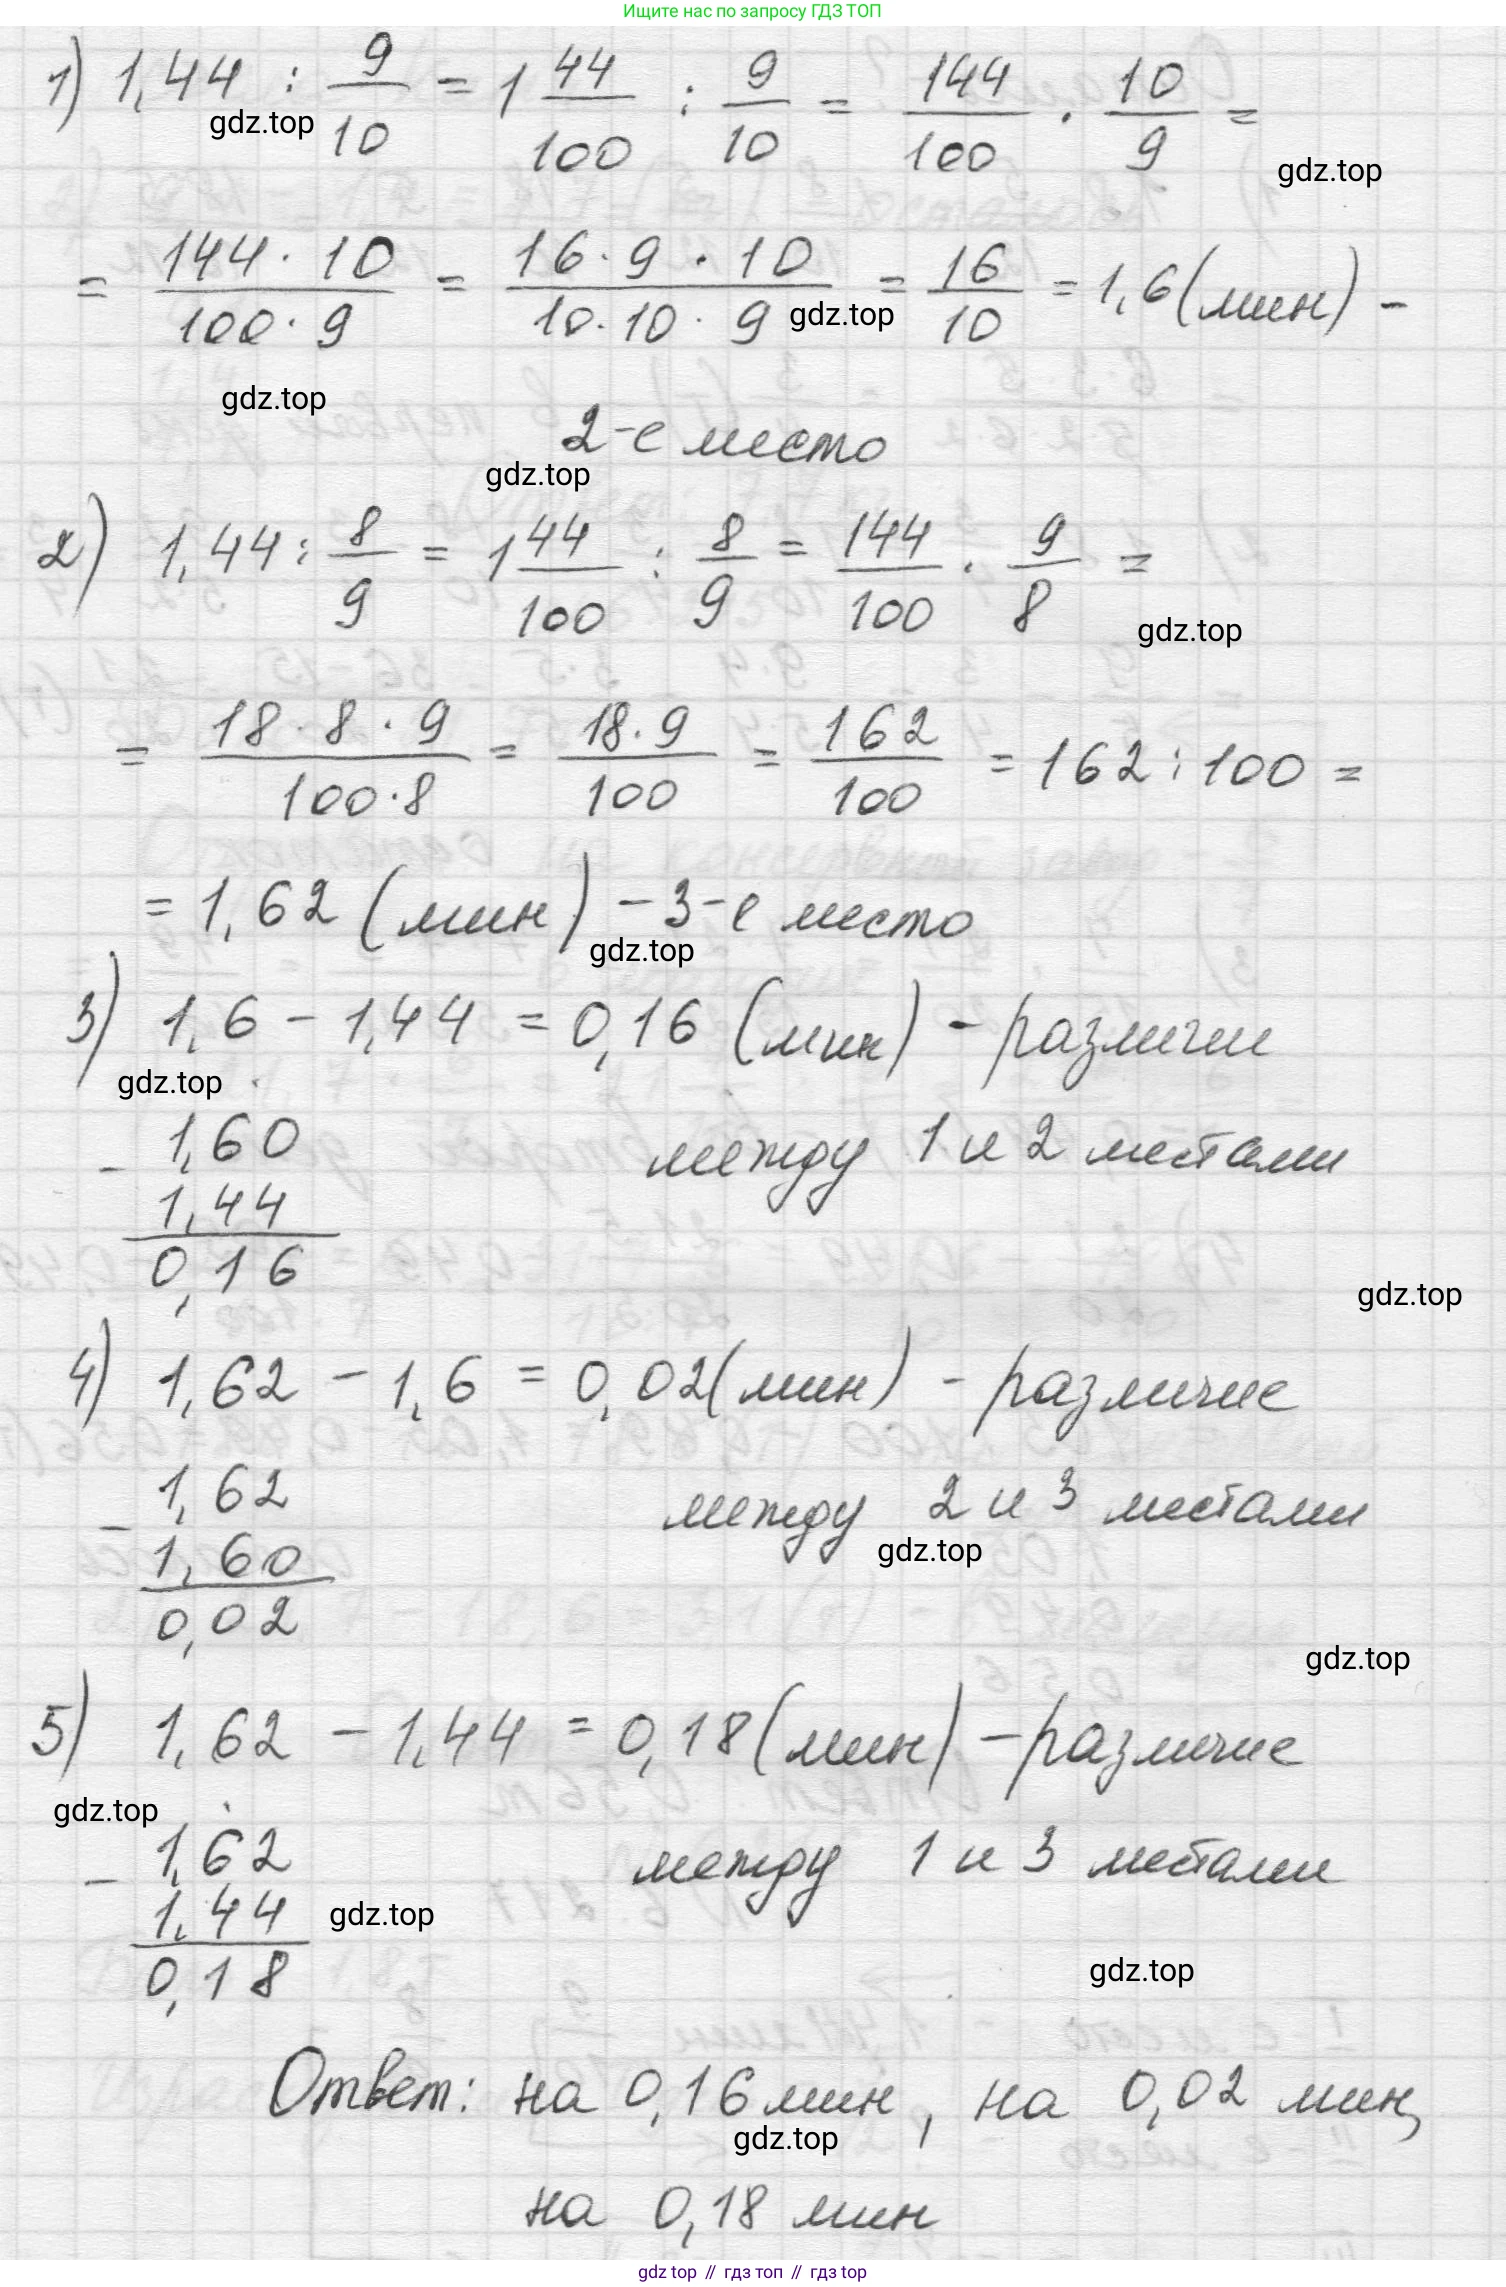 Ищите нас по запросу ГДЗ ТОП
1) 1,44 : 9/10 = 1 44/100 : 9/10 = 144/100 · 10/9 =
gdz.top
gdz.top
= 144 · 10 / 100 · 9 = 16 · 9 · 10 / 10 · 10 · 9 = 16/10 = 1,6 (мин) -
gdz.top
gdz.top
2-е место
gdz.top
2) 1,44 : 8/9 = 1 44/100 : 8/9 = 144/100 · 9/8 =
gdz.top
= 18 · 8 · 9 / 100 · 8 = 18 · 9 / 100 = 162/100 = 162 : 100 =
= 1,62 (мин) - 3-е место
gdz.top
3) 1,6 - 1,44 = 0,16 (мин) - различии
gdz.top
- 1,60 между 1 и 2 местами
1,44
0,16
gdz.top
4) 1,62 - 1,6 = 0,02 (мин) - различие
- 1,62 между 2 и 3 местами
1,60
gdz.top
0,02
gdz.top
5) 1,62 - 1,44 = 0,18 (мин) - различие
gdz.top
- 1,62 между 1 и 3 местами
1,44
gdz.top
0,18
gdz.top
Ответ: на 0,16 мин, на 0,02 мин,
gdz.top
на 0,18 мин
gdz top // гдз топ // гдз top